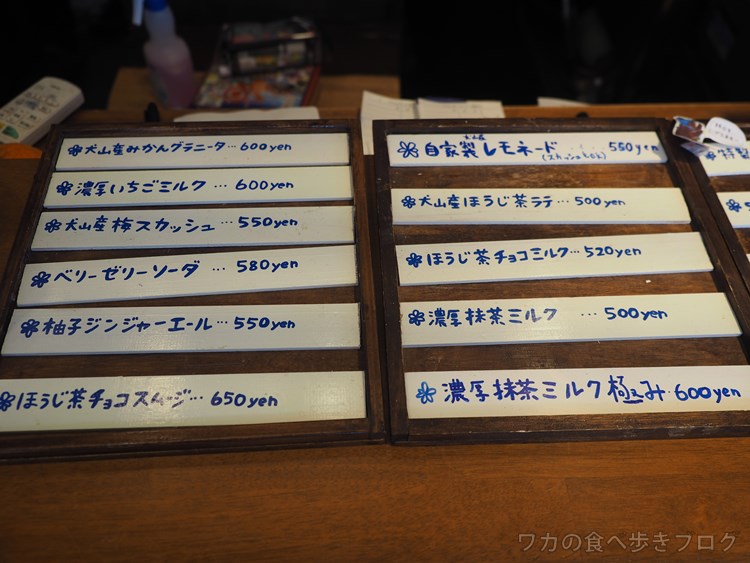 犬山産みかんグラニータ…600yen
濃厚いちごミルク…600yen
犬山産柊スカッシュ…550yen
ベリーゼリーソーダ…580yen
柚子ジンジャーエール…550yen
ほうじ茶チョコスムージ…650yen
自家製レモネード…550yen
(スカッシュもOK)
犬山産ほうじ茶ラテ…500yen
ほうじ茶チョコミルク…520yen
濃厚抹茶ミルク…500yen
濃厚抹茶ミルク極み・600yen
特製
ワカの食べ歩きブログ